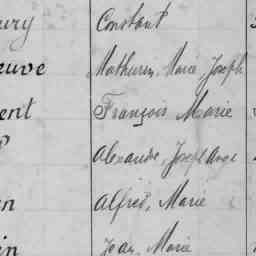 ury Constant
euve Mathurin, Marie Joseph
ent François Marie
Alexandre, Joseph Ange
n Alfred, Marie
in Jean, Marie